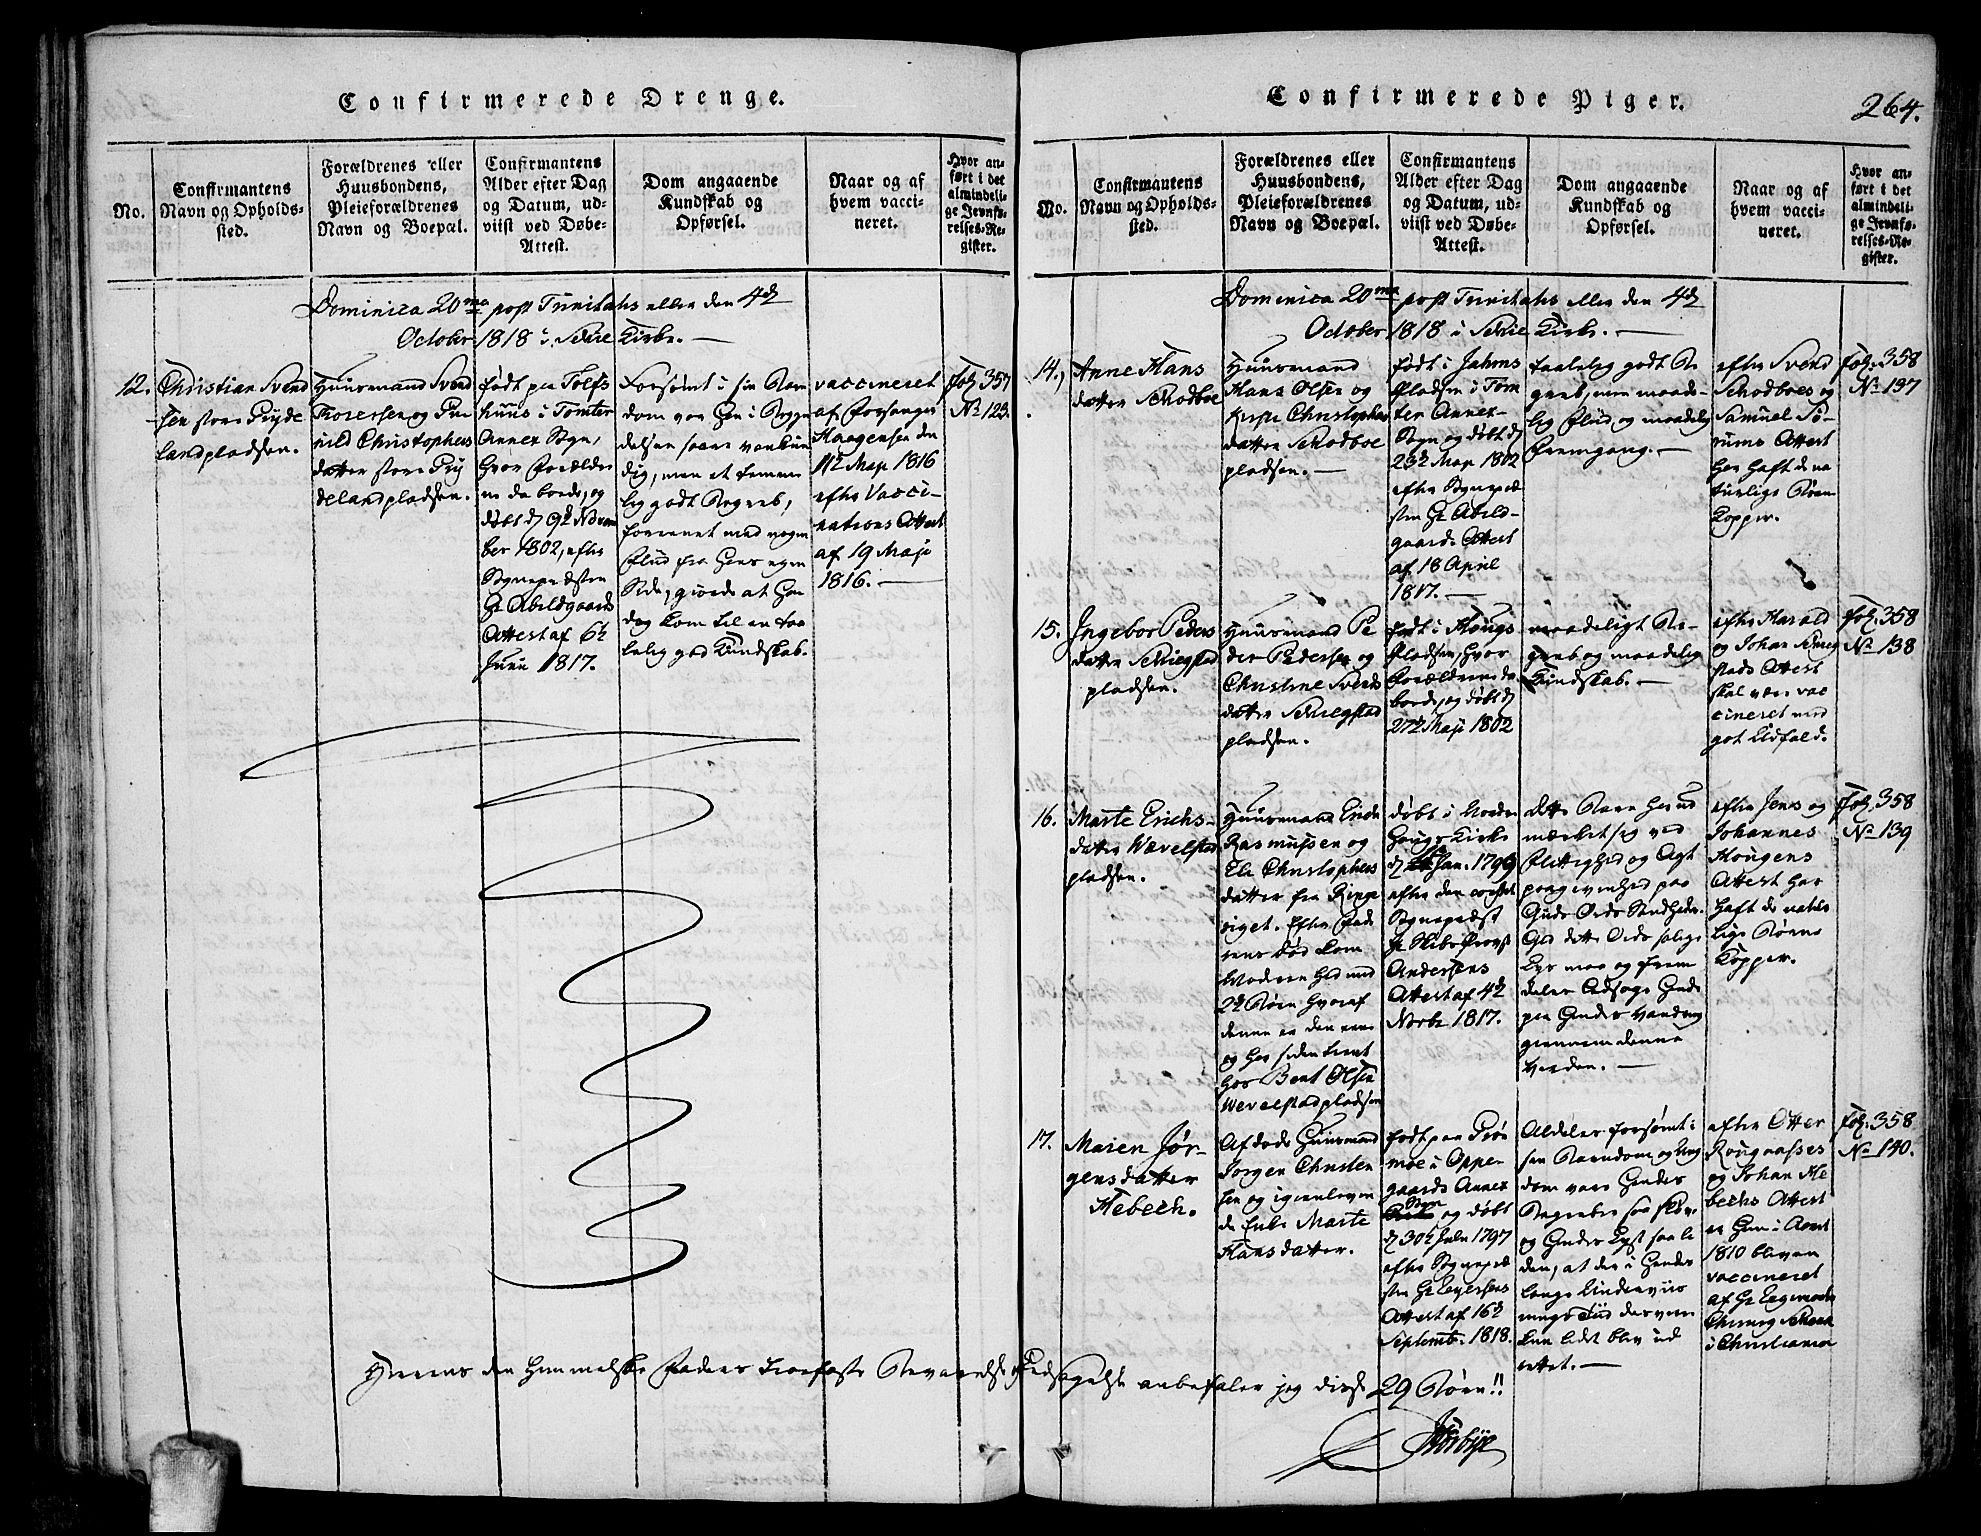 Confirmerede Drenge.
No.
Confirmantens
Navn og Opholds-
sted.
Forældrenes eller
Huusbondens,
Pleieforældrenes
Navn og Boepæl.
Confirmantens
Alder efter Dag
og Datum, ud-
viist ved Døbe-
Attest.
Dom angaaende
Kundskab og
Opførsel.
Naar og af
hvem vacci-
neret.
Hvor an-
ført i det
almindeli-
ge Jevnfø-
relses-Re-
gister.
Dominica 20ma post Trinitatis eller den 4d
October 1818 i Schie Kirke.
12.
Christian Svend
sen store Fryde
landpladsen.
Huusmand Svend
Toresen og Gu
nild Christophers
datter store Fry
delandpladsen.
født paa Tolfs
huus i Tomter
Annex Sogn,
hvor Forældre
ne da boede, og
døbt d 9d Novem
ber 1802, efter
Sognepræsten
Hr Abildgaards
Attest af 6d
Junii 1817.
Forsømt i sin Barn
dom var han i Begyn
delsen saare vankun
dig, men et temme
lig godt Begreb,
forenet med nogen
Flid fra hans egen
Side, giorde at han
dog kom til en taa
lelig god Kundskab.
vaccineret
af Forsanger
Haagensen den
11d Maji 1816
efter Vacci-
nations Attest
af 19 Maji
1816.
Fol. 357
No 123.
Herrens den Himmelske Faders kierfaste Bevarelse
Confirmerede Piger.
264.
No.
Confirmantens
Navn og Opholds-
sted.
Forældrenes eller
Huusbondens,
Pleieforældrenes
Navn og Boepæl.
Confirmantens
Alder efter Dag
og Datum, ud-
viist ved Døbe-
Attest.
Dom angaaende
Kundskab og
Opførsel.
Naar og af
hvem vacci-
neret.
Hvor an-
ført i det
almindeli-
ge Jevnfø-
relses-Re-
gister.
Dominica 20ma post Trinitatis eller den 4d
October 1818 i Schie Kirke.
14.
Anne Hans
datter Schodboe
Huusmand
Hans Olsen og
Kirsti Christophers
datter Schodboe
pladsen.
født i Jahrns
Pladsen i Tom
ter Annex-
Sogn og døbt d
23d Maji 1802
efter Sognepræ
sten Hr Abild-
gaards Attest
af 18 April
1817.
taalelig godt Be
greb, men maade-
lig Flid og maadelig
Fremgang.
efter Svend
Schodboes og
Samuel Sø-
rums Attest
har haft de na
turlige Børne
Kopper.
Fol. 358
No 137
15.
Ingebor Peders
datter Schiegstad
pladsen.
Huusmand Pe
der Pedersen og
Christine Svends
datter Schiegstad
pladsen.
født i Hougs
Pladsen, hvor
Forældrene da
boede, og døbt d
27d Maji 1802
maadeligt Be-
greb og maadelig
Kundskab.
efter Harald
og Johan Schieg
stads Attest
skal være vac
cineret med
got Udfald.
Fol. 358
No 138
16.
Marte Erichs-
datter Wævelstad
pladsen.
Huusmand Erich
Rasmussen og
Eli Christophers
datter fra Ringe
riget. Efter Fade
rens Død kom
Moderen hid med
2d Børn hvoraf
denne er den ene
og har siden tient
hos Bent Olsen
Wevelstadpladsen
døbt i Norder
Hougs Kirke
d Jan. 1799
efter den
Sognepræst
Hr Andersens
Attest af 4d
Novbr 1817.
dette Barn har ud
mærket sig ved
Flittighed og Agt
paagivenhed paa
Guds Ords Sandheder.
Gid dette Ords salige
Lys maa og frem
deles ledsage hende
paa hendes Vandring
giennem denne
Verden.
efter Jens og
Johannes
Hougens
Attest har
haft de natur
lige Børne
Kopper.
Fol. 358
No 139
17.
Maren Jør-
gensdatter
Hebech.
Afdøde Huusmand
Jørgen Christen
sen og igienleven
de Enke Marte
Hansdatter.
født paa Trøs
moe i Oppe
gaards Annex
Sogn og døbt
d 30d Julii 1797
efter Sognepræ
sten Hr Leyersens
Attest af 16d
Septembr. 1818.
Aldeles forsømt i
sin Barndom og Ung
dom vare hendes
Begreber saa sløve
og hendes Lyst saa li
den, at der i hendes
lange Underviis
nings Tiid desværre
kun lidet blev ud
rettet.
efter Otter
Rougaasses
og Johan He
bechs Attest
er hun i Aaret
1810 bleven
vaccineret
af Hr Regiments
Chirurg Schoch
i Christiania
Fol. 358
No 140.
anbefaler jeg disse 29 Børn!!